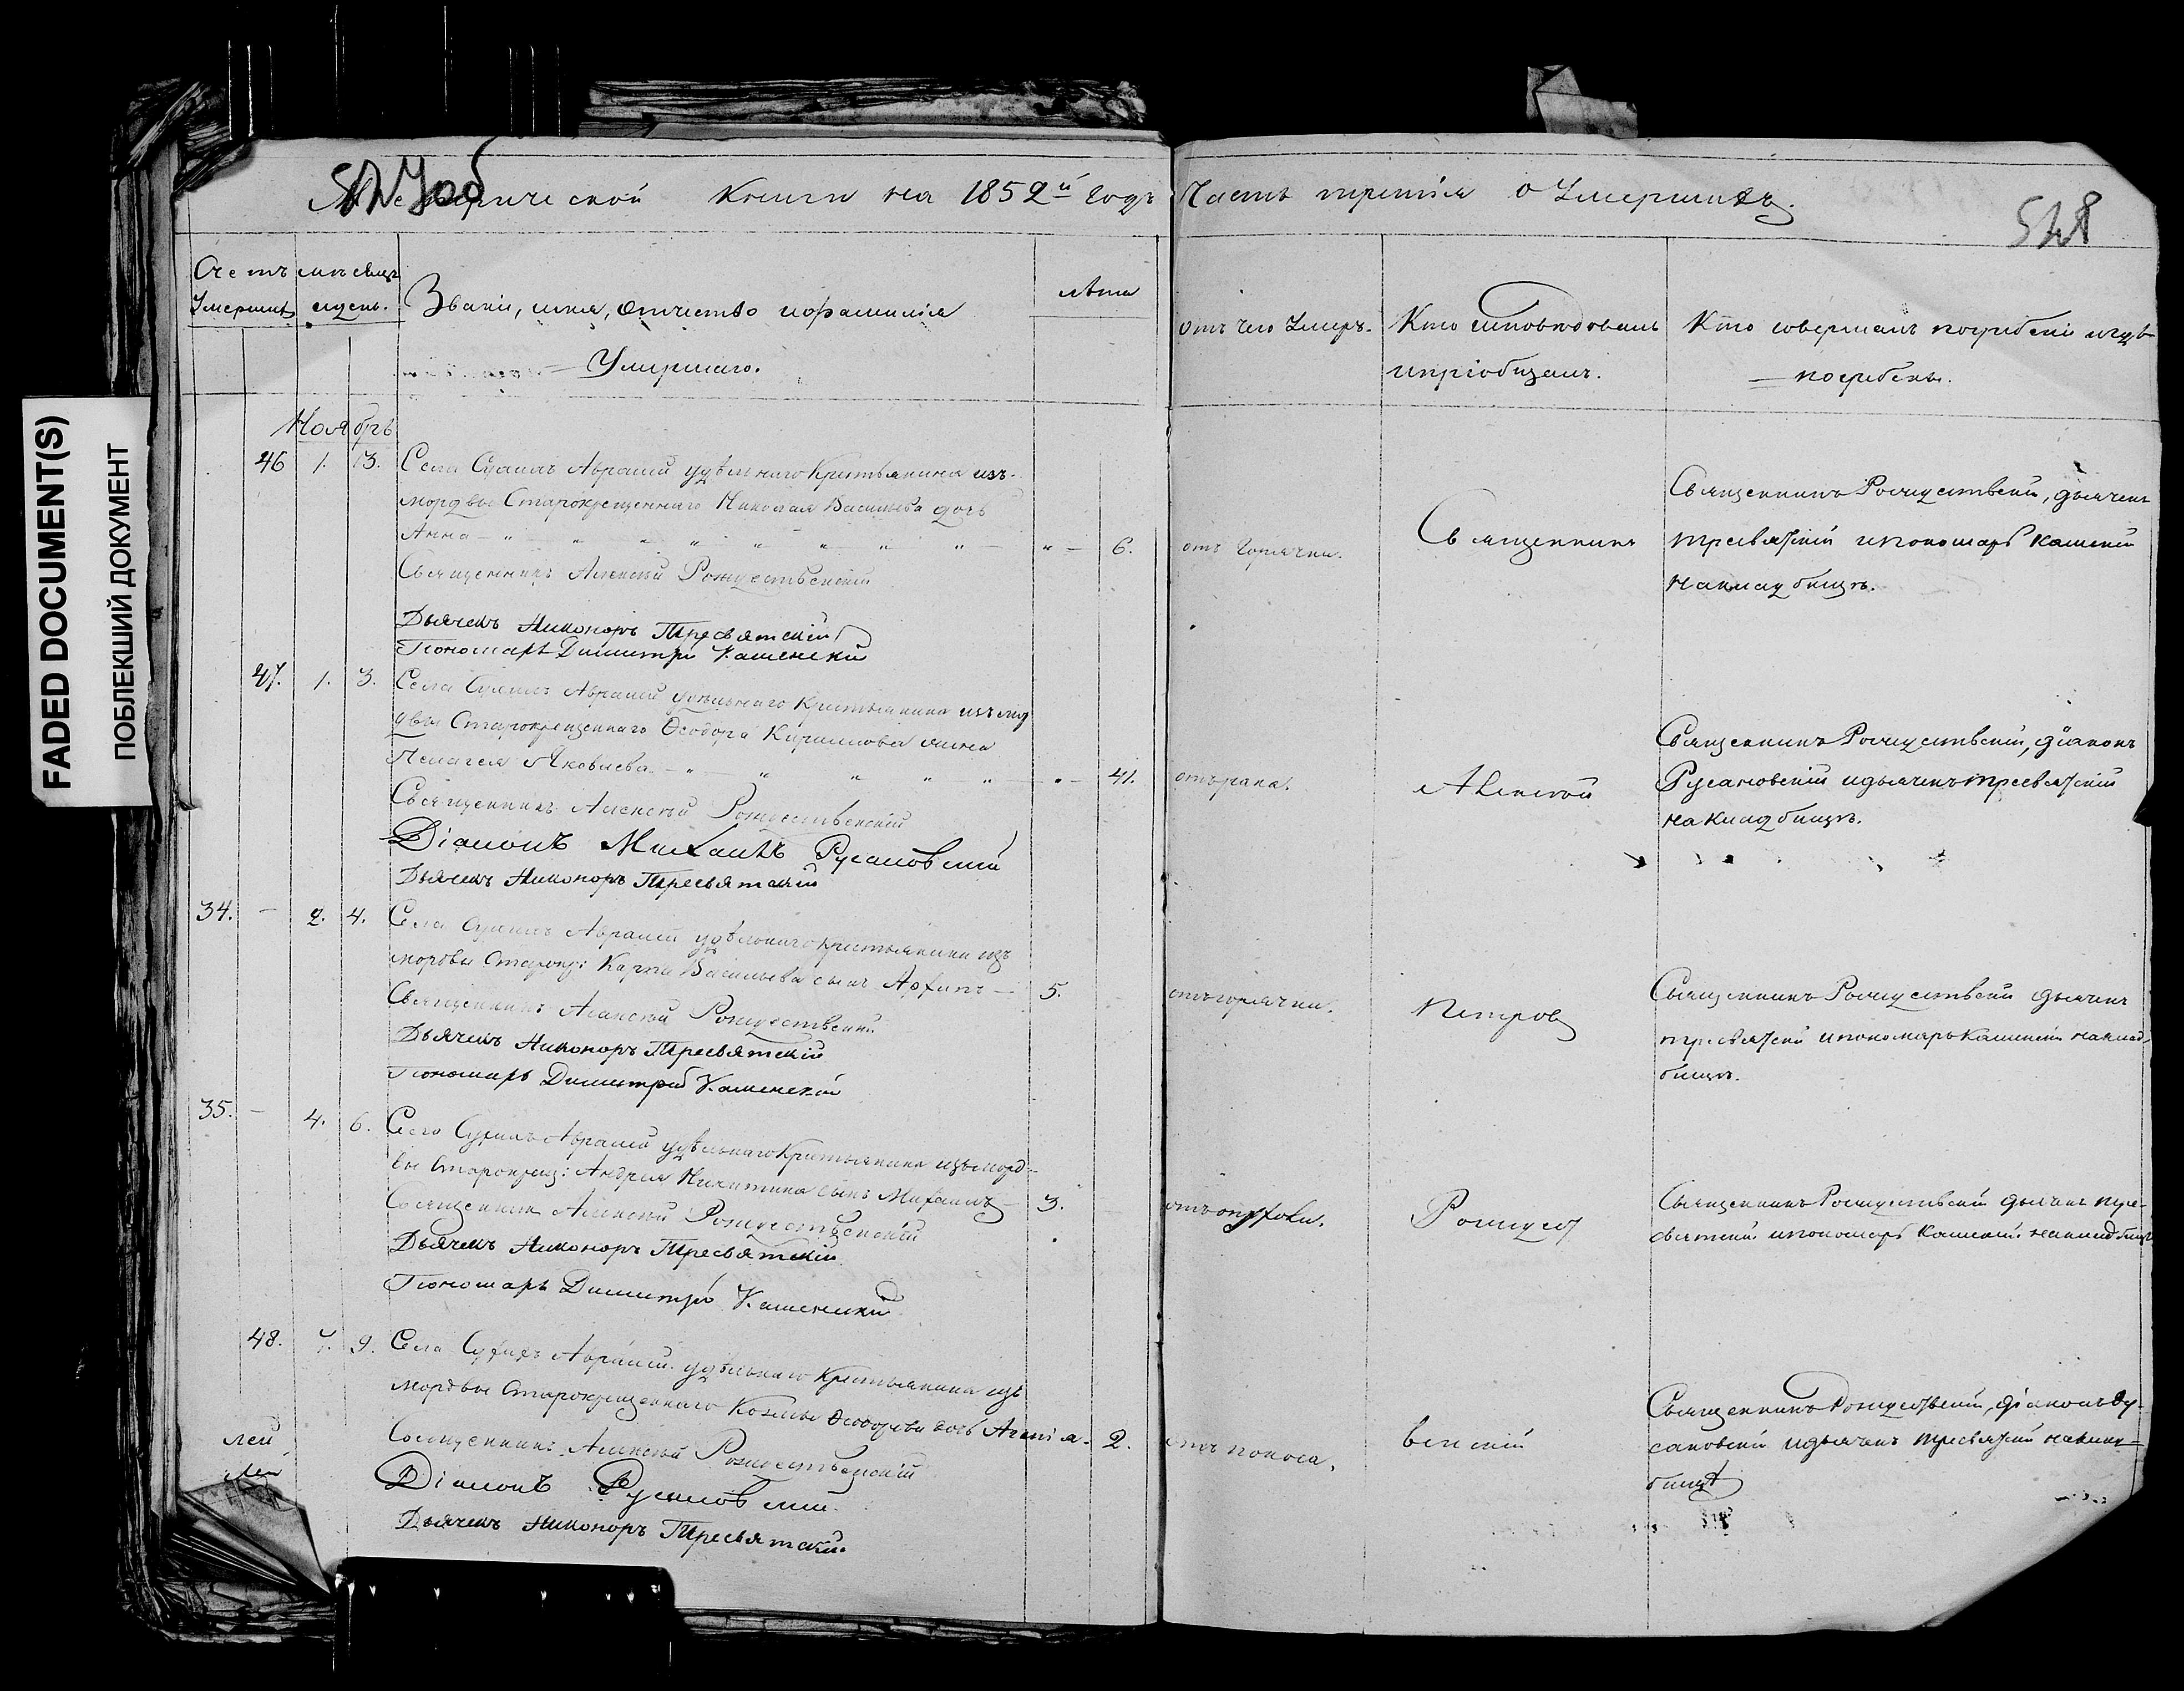 FADED DOCUMENT(S)
ПОБЛЕКШИЙ ДОКУМЕНТ
Метрической книги на 1852й годъ Часть третія о Умершихъ.
548
Счетъ Умерших
мѣсяцъ и день.
Званіе, имя, отчество и фамилія
Умершаго.
лѣта
отъ чего Умеръ.
Кто исповѣдовалъ
и пріобщалъ.
Кто совершалъ погребеніе и гдѣ
погребены.
Ноябрь
46 1. 3. Села Авралей удѣльнаго Крестьянина изъ
мордвы Старокрещеннаго Николая Васильева дочь
Анна 6. отъ Горячки.
Священникъ Алексѣй Рождественскій
Дьячекъ Никоноръ Тресвятскій
Пономарь Димитрій Каменскій
Священникъ
Священникъ Рождественскій, дьячекъ
Тресвятскій и пономарь Каменскій
На кладбищѣ.
47. 1. 3. Села Авралей удѣльнаго Крестьянина изъ морд
двы Старокрещеннаго Ѳеодора Кириллова жена
Пелагея Яковлева 41. отъ рака.
Священникъ Алексѣй Рождественскій
Діаконъ Михаилъ Русановскій
Дьячекъ Никоноръ Тресвятскій
Алексѣй
Священникъ Рождественскій, діаконъ
Русановскій и дьячекъ Тресвятскій
на кладбищѣ.
34. - 2. 4. Села Авралей удѣльнаго крестьянина изъ
мордвы Старокр: Карпа Васильева сынъ 5. отъ горячки.
Священникъ Алексѣй Рождественскій
Дьячекъ Никоноръ Тресвятскій
Пономарь Димитрій Каменскій
Петровъ
Священникъ Рождественскій дьячекъ
Тресвятскій и пономарь Каменскій на клад-
бищѣ.
35. - 4. 6. Села Авралей удѣльнаго Крестьянина изъ морд-
вы Старокрещ: Андрея Никитина сынъ Михаилъ 3.
Священникъ Алексѣй Рождественскій
Дьячекъ Никоноръ Тресвятскій
Пономарь Димитрій Каменскій
Рождест
Священникъ Рождественскій дьячекъ Тре-
святскій и пономарь Каменскій на кладбищѣ
48. 7. 9. Села Авралей удѣльнаго Крестьянина изъ
мордвы Старокрещеннаго Козьмы Ѳеодорова дочь 2. отъ поноса.
Священникъ Алексѣй Рождественскій
Діаконъ Русановскій
Дьячекъ Никоноръ Тресвятскій.
венскій
Священникъ Рождественскій, діаконъ Ру-
сановскій и дьячекъ Тресвятскій на клад-
бищѣ
лей